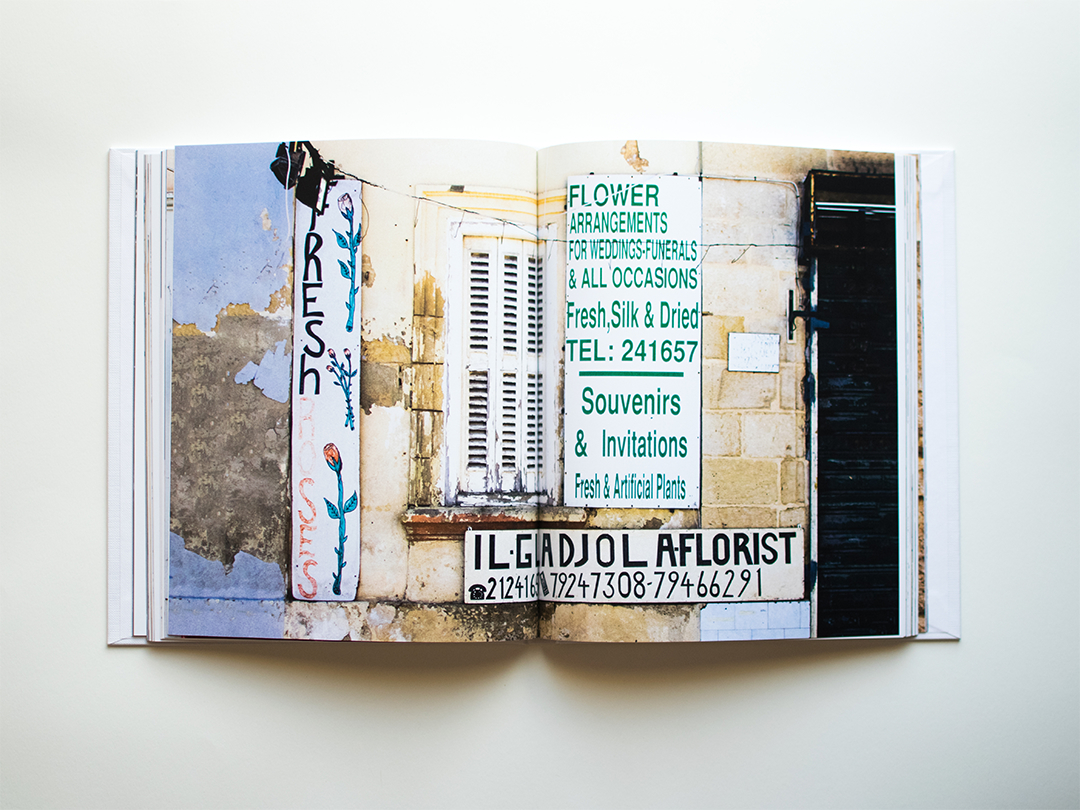 FRESh
ROSES
FLOWER
ARRANGEMENTS
FOR WEDDINGS-FUNERALS
& ALL OCCASIONS
Fresh,Silk & Dried
TEL: 241657
Souvenirs
& Invitations
Fresh & Artificial Plants
IL·GLADJOLA·FLORIST
79247308-79466291